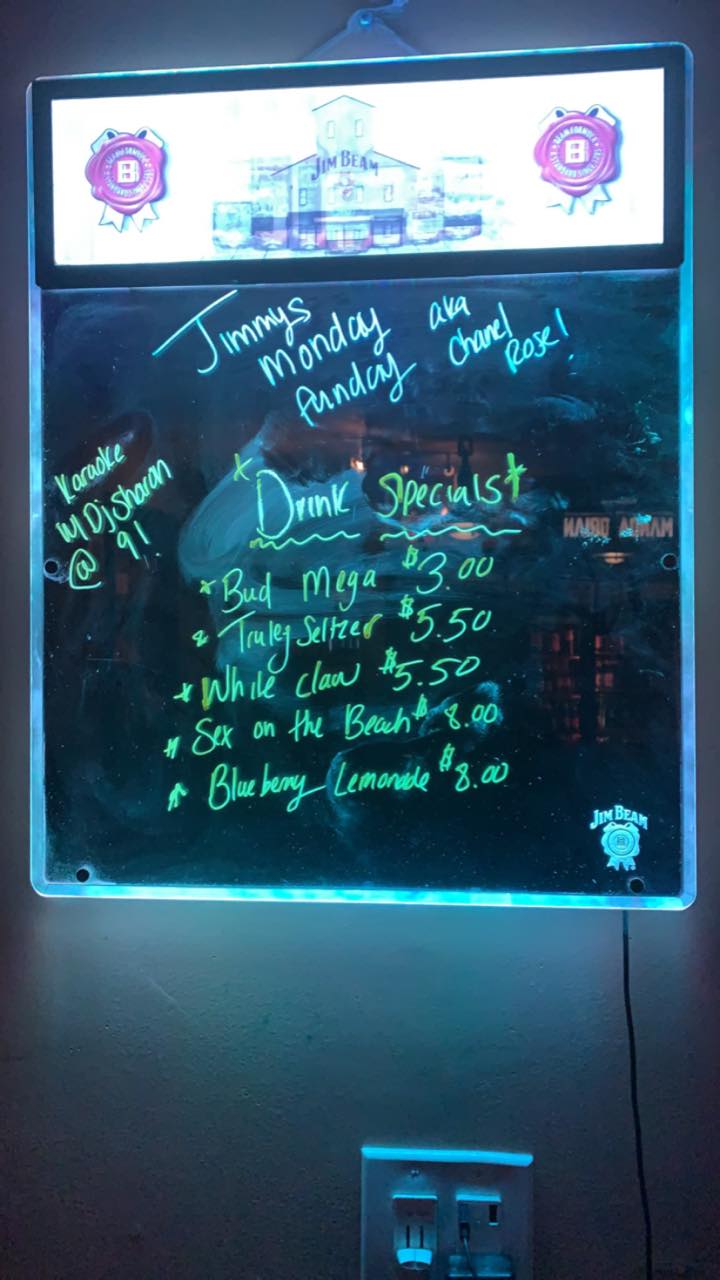 JIM BEAM
B
B
Jimmys
Monday
funday
aka
Chanel
Rose!
Karaoke
W DjSharon
@ 9!
Drink Specials
Bud Mega $3.00
Truley Seltzer $5.50
While Claw $5.50
Sex on the Beach $8.00
Blueberry Lemonade $8.00
JIM BEAM